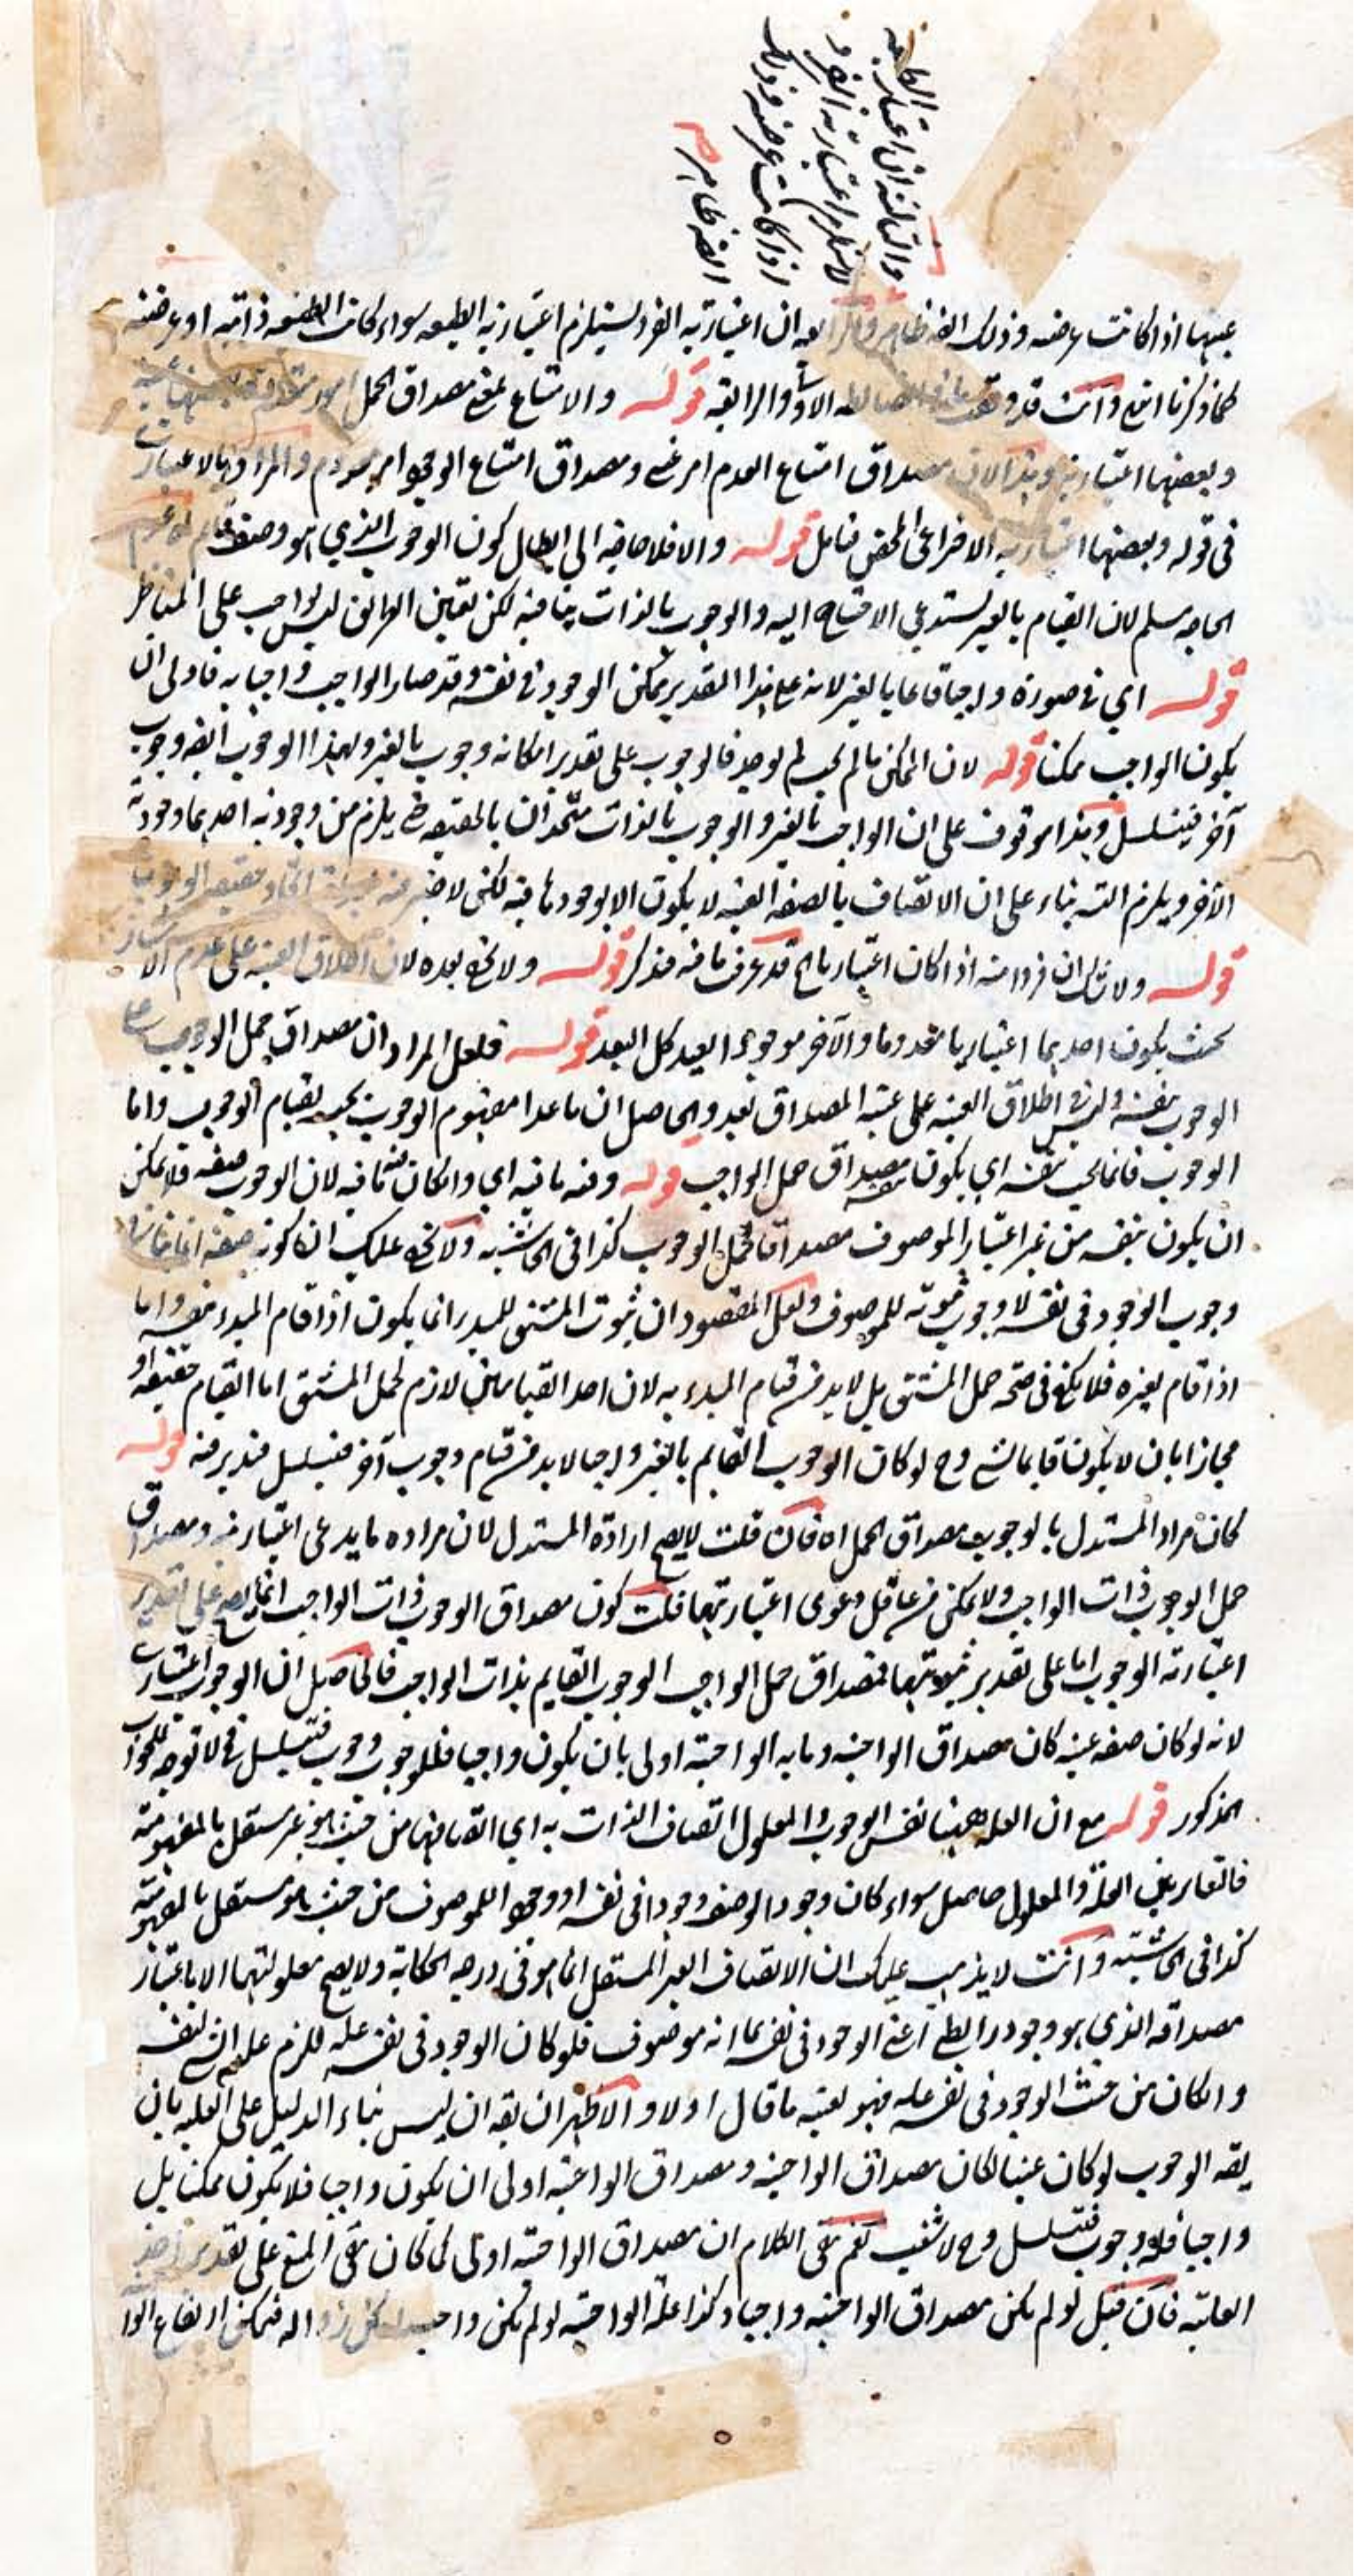 والثالثة ان اعتبارية
لاستلزام اعتبارية الفرد
اذا كانت عرضية وذلك
ايضا ظاهر صح
عينها اذا كانت عرضيه وذلك ايضا ظاهر ان اعتبارية الفرد يستلزم اعتبارية الطبيعه سواء كانت ذاتيه او عرضيه
كما ذكرنا وانت قد والرابعة قوله والامتناع بمعنى مصداق الحمل
وبعضها اعتبارية مصداق امتناع العدم امر عيني ومصداق امتناع الوجود امر معدوم والمراد بالاعتباري
في قوله وبعضها الاختراعي المحض فتامل قوله والا فلا حاجة الى ابطال كون الوجوب الذي هو وصف
الحاجه مسلم لان القيام بالغير يستدعي الاحتياج اليه والوجوب بالذات ينافيه لكن تعيين الطريق ليس بواجب على المناظر
قوله اي في صورة واجبا قائما بالغير لانه على هذا التقدير ممكن الوجود في نفسه وقد صار الواجب واجبا به فاولى ان
يكون الواجب ممكنا قوله لان الممكن ما لم يجب لم يوجد فالوجوب على تقدير امكانه وجوب بالغير ولهذا الوجوب ايضا وجوب
آخر فيتسلسل وهذا موقوف على ان الواجب بالغير والوجوب بالذات متحدان بالحقيقة حتى يلزم من وجودية احدهما وجودية
الآخر ويلزم التسلسل بناء على ان الاتصاف بالصفة العينية لا يكون الا بوجودها فيه لكن اتحاد حقيقة الوجوب
قوله ولا شك ان فردا منه اذا كان اعتباريا الخ قد عرفت ما فيه فتذكر قوله ولا يخفى بعده لان اطلاق العينية على عدم الامتياز
بحيث يكون احدهما اعتباريا معدوما والآخر موجودا بعيد كل البعد قوله فلعل المراد ان مصداق حمل الوجوب على
الوجوب نفسه وليس في اطلاق العينية على عينية المصداق بعد والحاصل ان ما عدا مفهوم الوجوب يجب بقيام الوجوب واما
الوجوب فانما يجب بنفسه اي يكون نفسه مصداق حمل الواجب قوله وفيه ما فيه اي وان كان ما فيه لان الوجوب صفة فلا يمكن
ان يكون بنفسه من غير اعتبار الموصوف مصداقا لحمل الوجوب كذا في الحاشية ولا يخفى عليك ان كونه صفة انما
وجوب الوجود في نفسه لا وجوب ثبوته للموصوف ولعل المقصود ان ثبوت المشتق للمبدء انما يكون اذا قام المبدء بنفسه واما
اذا قام بغيره فلا يكفي في صحة حمل المشتق بل لابد من قيام المبدء به لان احد القيامين لازم لحمل المشتق اما القيام حقيقة او
مجازا بان لا يكون قائما بشيء وح لو كان الوجوب القايم بالغير واجبا لابد من قيام وجوب آخر فيتسلسل فتدبر فيه قوله
كان مراد المستدل بالوجوب مصداق الحمل اه فان قلت لا يصح ارادة المستدل لان مراده ما يدعى اعتباريته ومصداق
حمل الوجوب ذات الواجب ولا يمكن من عاقل دعوى اعتباريتها قلت كون مصداق الوجوب ذات الواجب انما يصح على تقدير
اعتبارية الوجوب اما على تقدير ثبوتيتها فمصداق حمل الواجب الوجوب القايم بذات الواجب فالحاصل ان الوجوب اعتباري
لانه لو كان صفة عينية كان مصداق الواجبية وما به الواجبية اولى بان يكون واجبا فللوجوب وجوب فيتسلسل فح لا توجه للجواب
المذكور قوله مع ان العلة ههنا نفس الوجوب والمعلول اتصاف الذات به اي اتصافها من حيث هو غير مستقل بالمفهومية
فالتغاير بين العلة والمعلول حاصل سواء كان وجود الوصف وجودا في نفسه او وجودا للموصوف من حيث هو مستقل بالمفهومية
كذا في الحاشية وانت لا يذهب عليك ان الاتصاف الغير المستقل انما هو في درجة الحكاية ولا يصح معلوليتها الا باعتبار
مصداقه الذي هو وجود رابطي اعني الوجود في نفسه بما انه موصوف فلو كان الوجود في نفسه علة للزم علية الشيء لنفسه
وان كان من حيث الوجود في نفسه علة فهو بعينه ما قال اولا والاظهر ان يقه ان ليس بناء الدليل على العلية بان
يقه الوجوب لو كان عينيا لكان مصداق الواجبية ومصداق الواجبية اولى ان يكون واجبا فلا يكون ممكنا بل
واجبا فله وجوب فتسلسل وح لا شغب نعم بقى الكلام ان مصداق الواجبية اولى كما كان بقى المنع على تقدير اخذ
العلية فان قيل لو لم يكن مصداق الواجبية واجبا وكذا علة الواجبية لو لم يكن واجبا امكن زواله فيمكن ارتفاع الوا